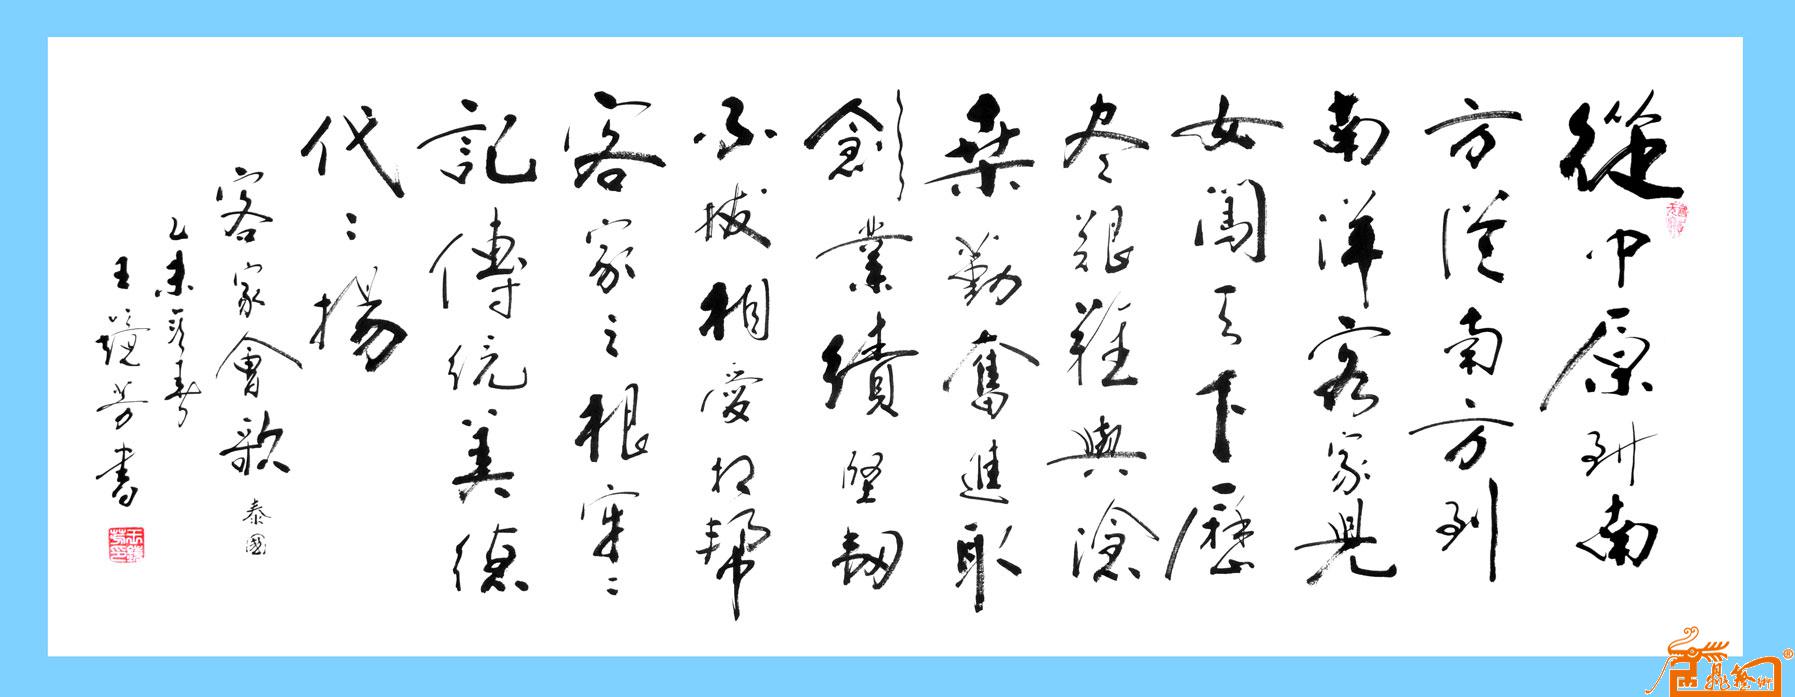 從中原到南
方從南方到
南洋客家兒
女闖天下歷
尽艱難與滄
桑勤奮進取
創業績堅韌
不拔相愛相幫
客家之根牢々
記傳統美德
代々揚
客家會歌 泰國
乙未春
王鏡芳書